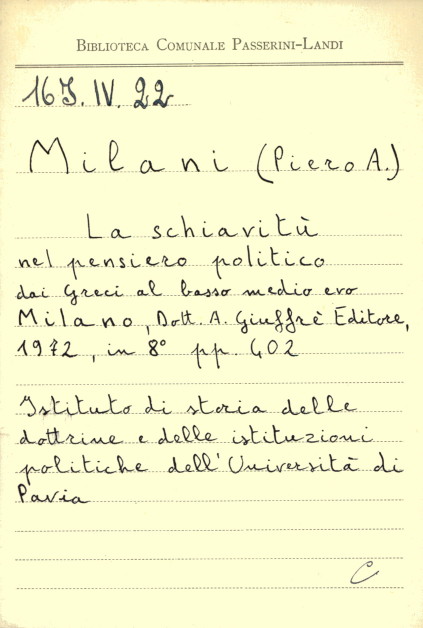 BIBLIOTECA COMUNALE PASSERINI-LANDI
16J.IV.22
Milani (Piero A.)
La schiavitù
nel pensiero politico
dai Greci al basso medio evo
Milano, Dott. A. Giuffrè Editore,
1972, in 8° pp. 402
Istituto di storia delle
dottrine e delle istituzioni
politiche dell'Università di
Pavia
C